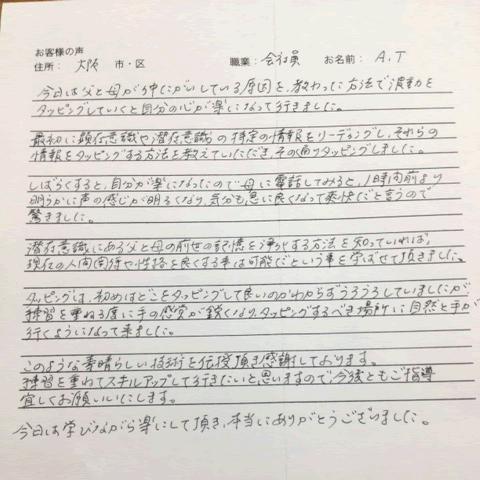 お客様の声
住所： 大阪 市・区 職業：会社員 お名前： A.T
今日は父と母が仲たがいしている原因を、教わった方法で波動を
タッピングしていくと自分の心が楽になって行きました。
最初に顕在意識や潜在意識の特定の情報をリーディングし、それらの
情報をタッピングする方法を教えていただき、その通りタッピングしました。
しばらくすると、自分が楽になったので母に電話してみると、1時間前より
明らかに声の感じが明るくなり、気分も急に良くなって爽快だと言うので
驚きました。
潜在意識にある父と母の前世の記憶を浄化する方法を知っていれば、
現在の人間関係や性格を良くする事は可能だという事を学ばせて頂きました。
タッピングは、初めはどこをタッピングして良いのかわからずうろうろしていましたが
練習を重ねる度に手の感覚が鋭くなり、タッピングするべき場所に自然と手が
行くようになって来ました。
このような素晴らしい技術を伝授頂き感謝しております。
練習を重ねてスキルアップして行きたいと思いますので、今後ともご指導
宜しくお願いいたします。
今日は学びながら楽にして頂き、本当にありがとうございました。